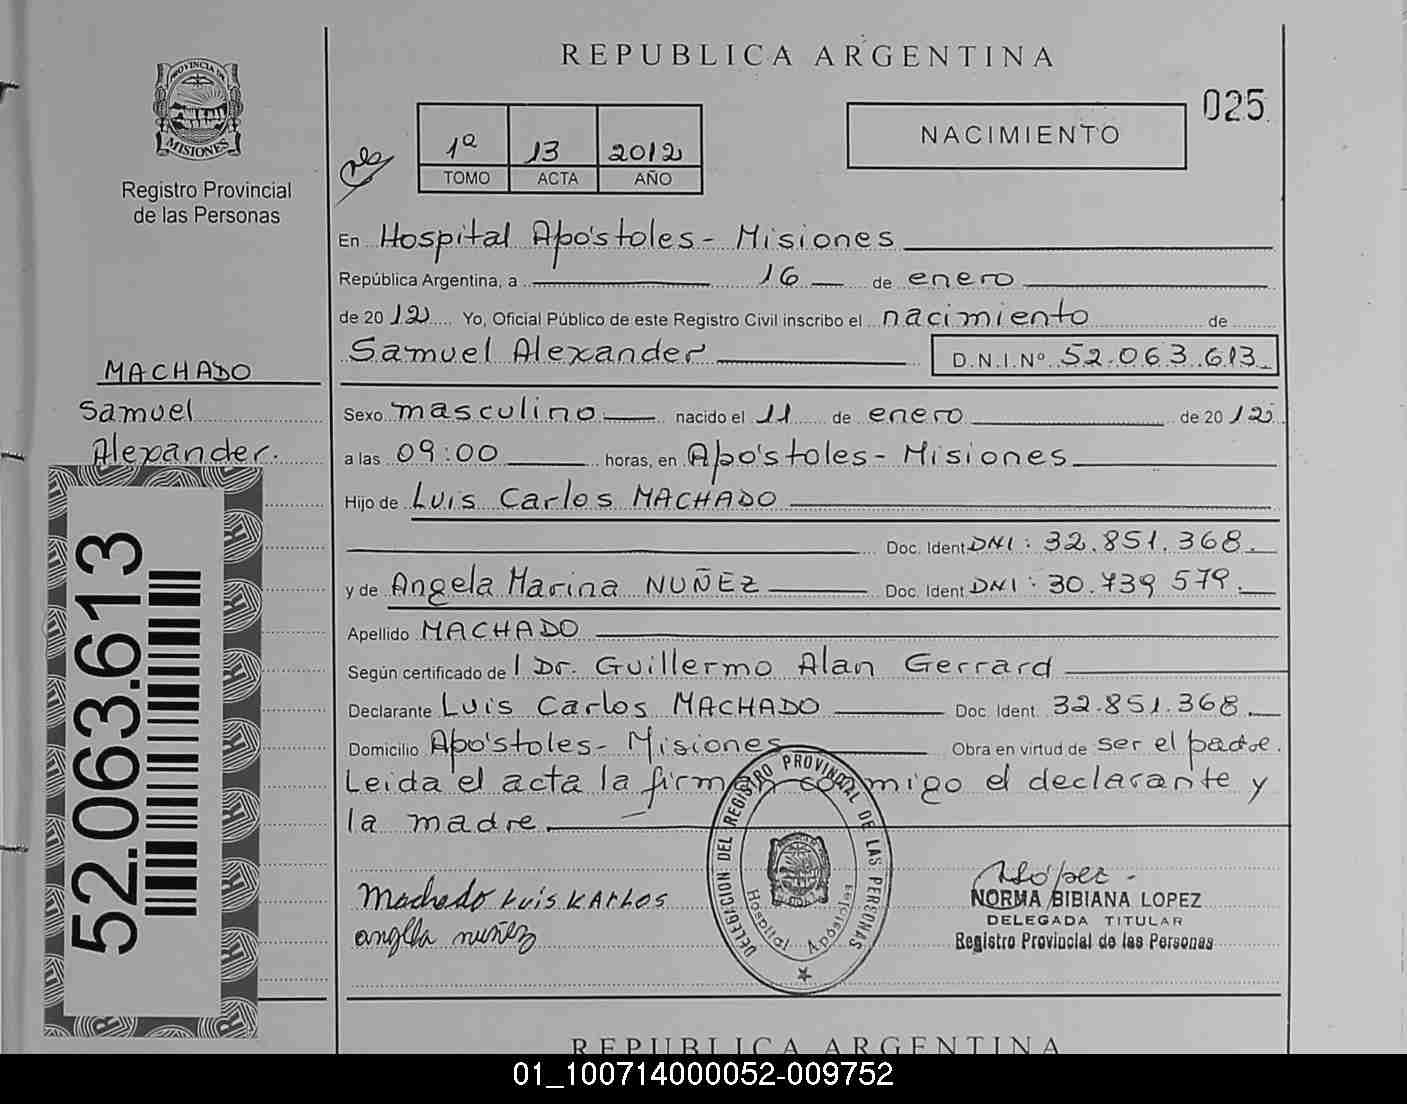 REPUBLICA ARGENTINA
025
PROVINCIA DE
MISIONES
Registro Provincial
de las Personas
1ª 13 2012
TOMO ACTA AÑO
NACIMIENTO
En Hospital Apóstoles - Misiones
República Argentina, a 16 de enero
de 2012 Yo, Oficial Público de este Registro Civil inscribo el nacimiento de
Samuel Alexander D.N.I.Nº 52.063.613
MACHADO
Samuel
Alexander.
52.063.613
Sexo masculino nacido el 11 de enero de 2012
a las 09:00 horas, en Apóstoles - Misiones
Hijo de Luis Carlos MACHADO
Doc. Ident. DNI: 32.851.368.
y de Angela Marina NUÑEZ Doc. Ident DNI: 30.739 579.
Apellido MACHADO
Según certificado de l Dr. Guillermo Alan Gerrard
Declarante Luis Carlos MACHADO Doc. Ident. 32.851.368.
Domicilio Apóstoles - Misiones Obra en virtud de ser el padre.
Leida el acta la firman conmigo el declarante y
la madre.
Machado Luis KARLOS
angela nuñez
DELEGACION DEL REGISTRO PROVINCIAL DE LAS PERSONAS
Hospital Apóstoles
NLópez
NORMA BIBIANA LOPEZ
DELEGADA TITULAR
Registro Provincial de las Personas
REPUBLICA ARGENTINA
01_100714000052-009752